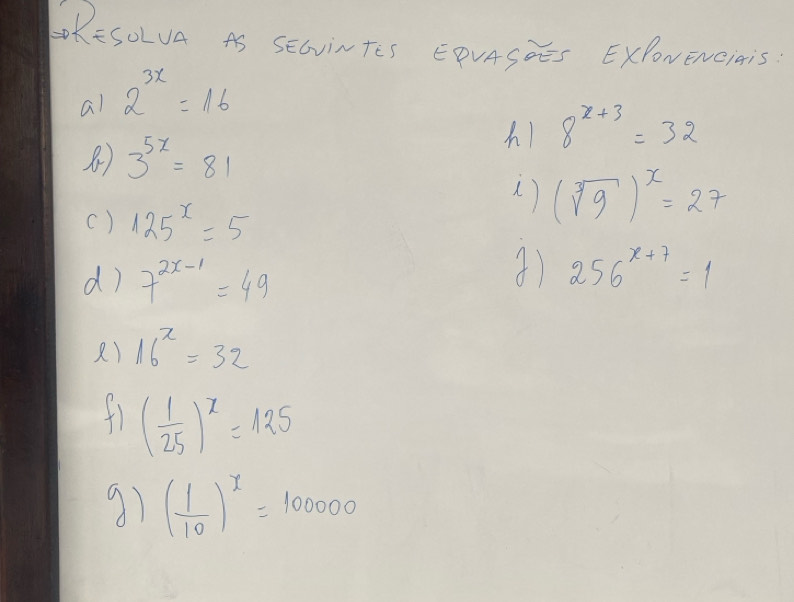 ⇒RESOLVA AS SEGUINTES EQUAÇÕES EXPONENCIAIS:
a) 2^{3x} = 16
b) 3^{5x} = 81
c) 125^x = 5
d) 7^{2x-1} = 49
e) 16^x = 32
f) (1/25)^x = 125
g) (1/10)^x = 100000
h) 8^{x+3} = 32
i) (∛9)^x = 27
j) 256^{x+7} = 1